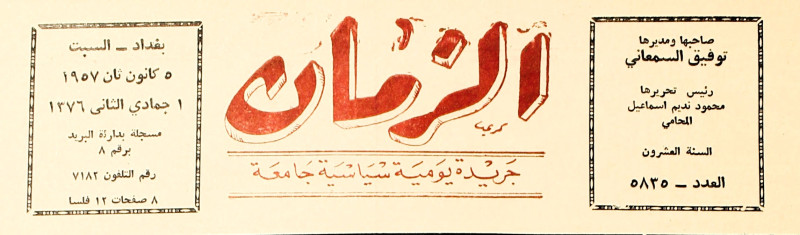 صاحبها ومديرها
توفيق السمعاني
رئيس تحريرها
محمود نديم اسماعيل
المحامي
السنة العشرون
العدد ـ ٥٨٣٥
الزمان
كريم
جريدة يومية سياسية جامعة
بغداد ـ السبت
٥ كانون ثان ١٩٥٧
١ جمادي الثانى ١٣٧٦
مسجلة بدارئة البريد
برقم ٨
رقم التلفون ٧١٨٢
٨ صفحات ١٢ فلسا